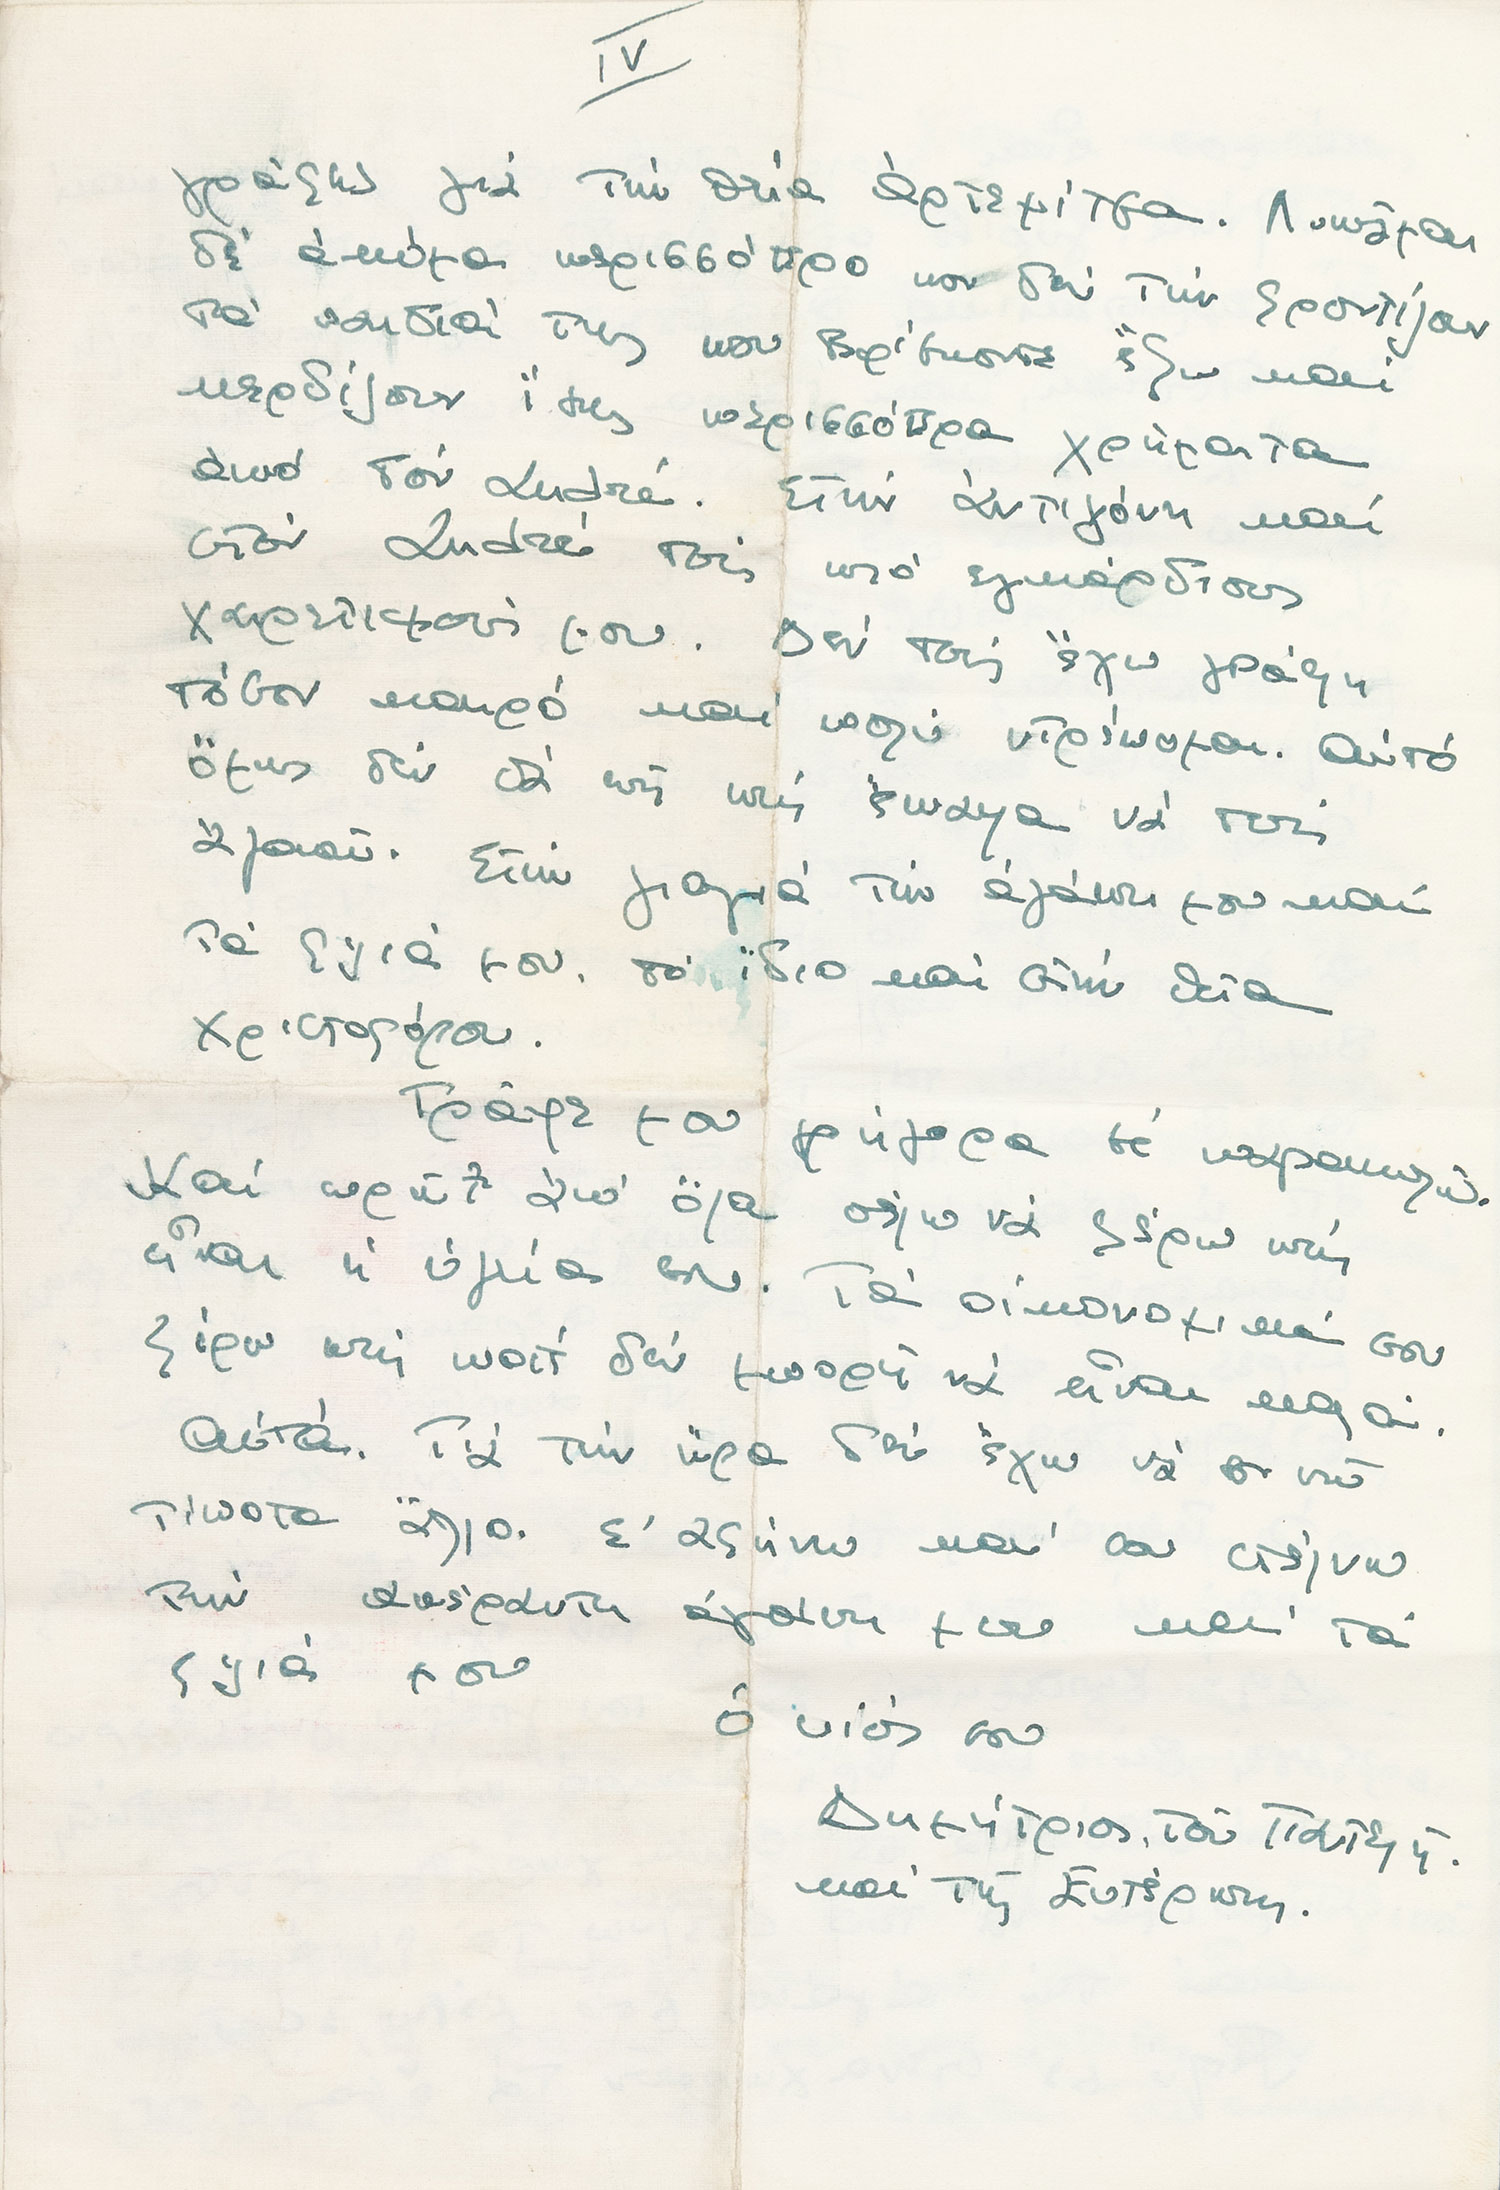 IV
γράφεις γιά τήν θεία Ἀρτεμίτσα. Λυπᾶμαι
δέ ἀκόμα περισσότερο που δέν τήν φροντίζουν
τά παιδιά της που βρίσκονται ἔξω καί
κερδίζουν ἴσως περισσότερα χρήματα
ἀπό τόν Ἀνδρέα. Στήν Ἀντιγόνη καί
στόν Ἀνδρέα τούς πιό εγκάρδιους
χαιρετισμούς μου. Δέν τούς ἔχω γράψει
τόσον καιρό καί πολύ ντρέπομαι. Αὐτό
ὅμως δέν θά πῆ πώς ἔπαψα νά τούς
ἀγαπῶ. Στήν γιαγιά τήν ἀγάπη μου καί
τά φιλιά μου, τό ἴδιο καί στήν θεία
Χριστοφόρου.
Γράψε μου γρήγορα σέ παρακαλῶ.
Καί πρῶτα ἀπ' ὅλα θέλω νά ξέρω πώς
εἶναι ἡ ὑγεία σου. Τά οἰκονομικά σου
ξέρω πώς ποτέ δέν μπορεῖ νά εἶναι καλά.
Αὐτά. Γιά τήν ὥρα δέν ἔχω νά σου πῶ
τίποτα ἄλλο. Σ' ἀφήνω καί σου στέλνω
τήν απέραντη ἀγάπη μου καί τά
φιλιά μου
ὁ υἱός σου
Δημήτριος, τοῦ Παντελῆ.
καί τῆς Εὐτέρπης.